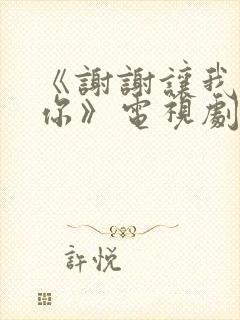 《謝謝讓我
你》電視劇
許悅